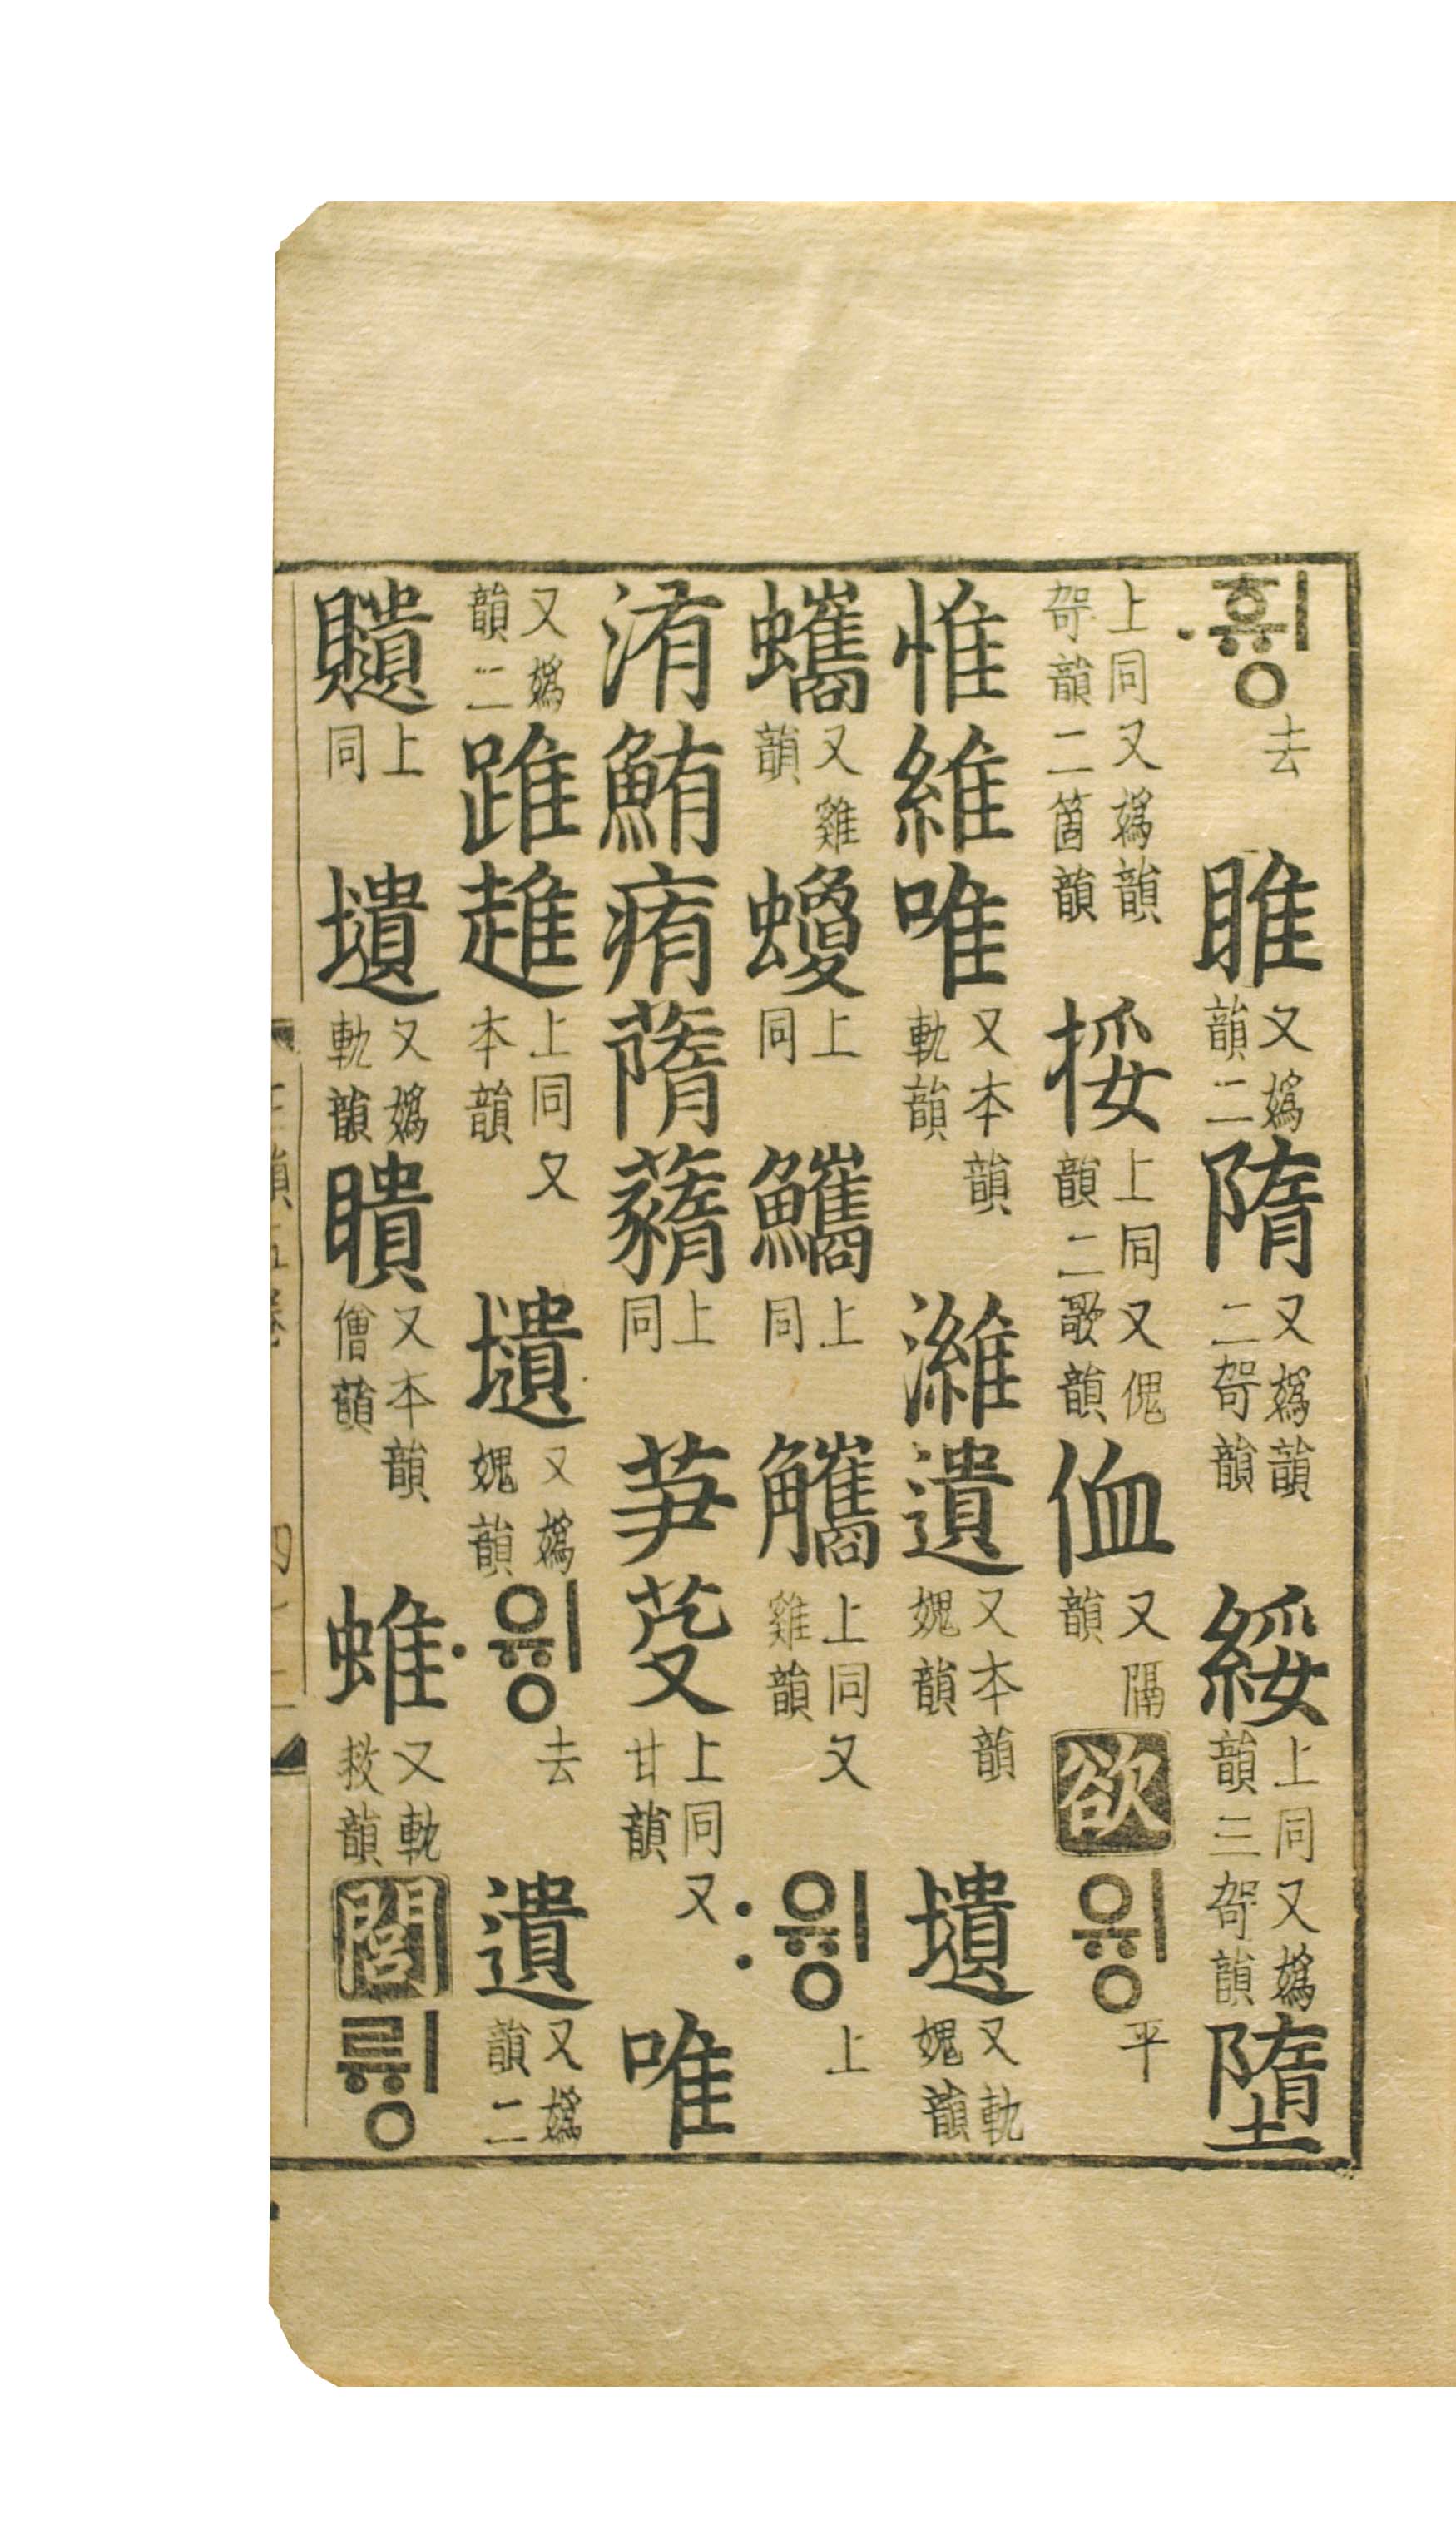 ᄒᆔᆼ〮去睢又嬀韻二隋又嬀韻二哿韻綏上同又嬀韻三哿韻墮
上同又嬀韻哿韻二箇韻挼上同又傀韻二歌韻侐又隔韻欲ᄋᆔᆼ平
惟維唯又本韻軌韻濰遺又本韻媿韻壝又軌媿韻
蠵又雞韻上同上同觿上同又雞韻ᄋᆔᆼ〯上
洧鮪痏上同芛上同又甘韻唯
又嬀韻二踓趡上同又本韻壝又嬀媿韻ᄋᆔᆼ〮去遺又嬀韻二
上同壝又嬀軌韻瞶又本韻儈韻蜼又軌救韻閭ᄅᆔᆼ